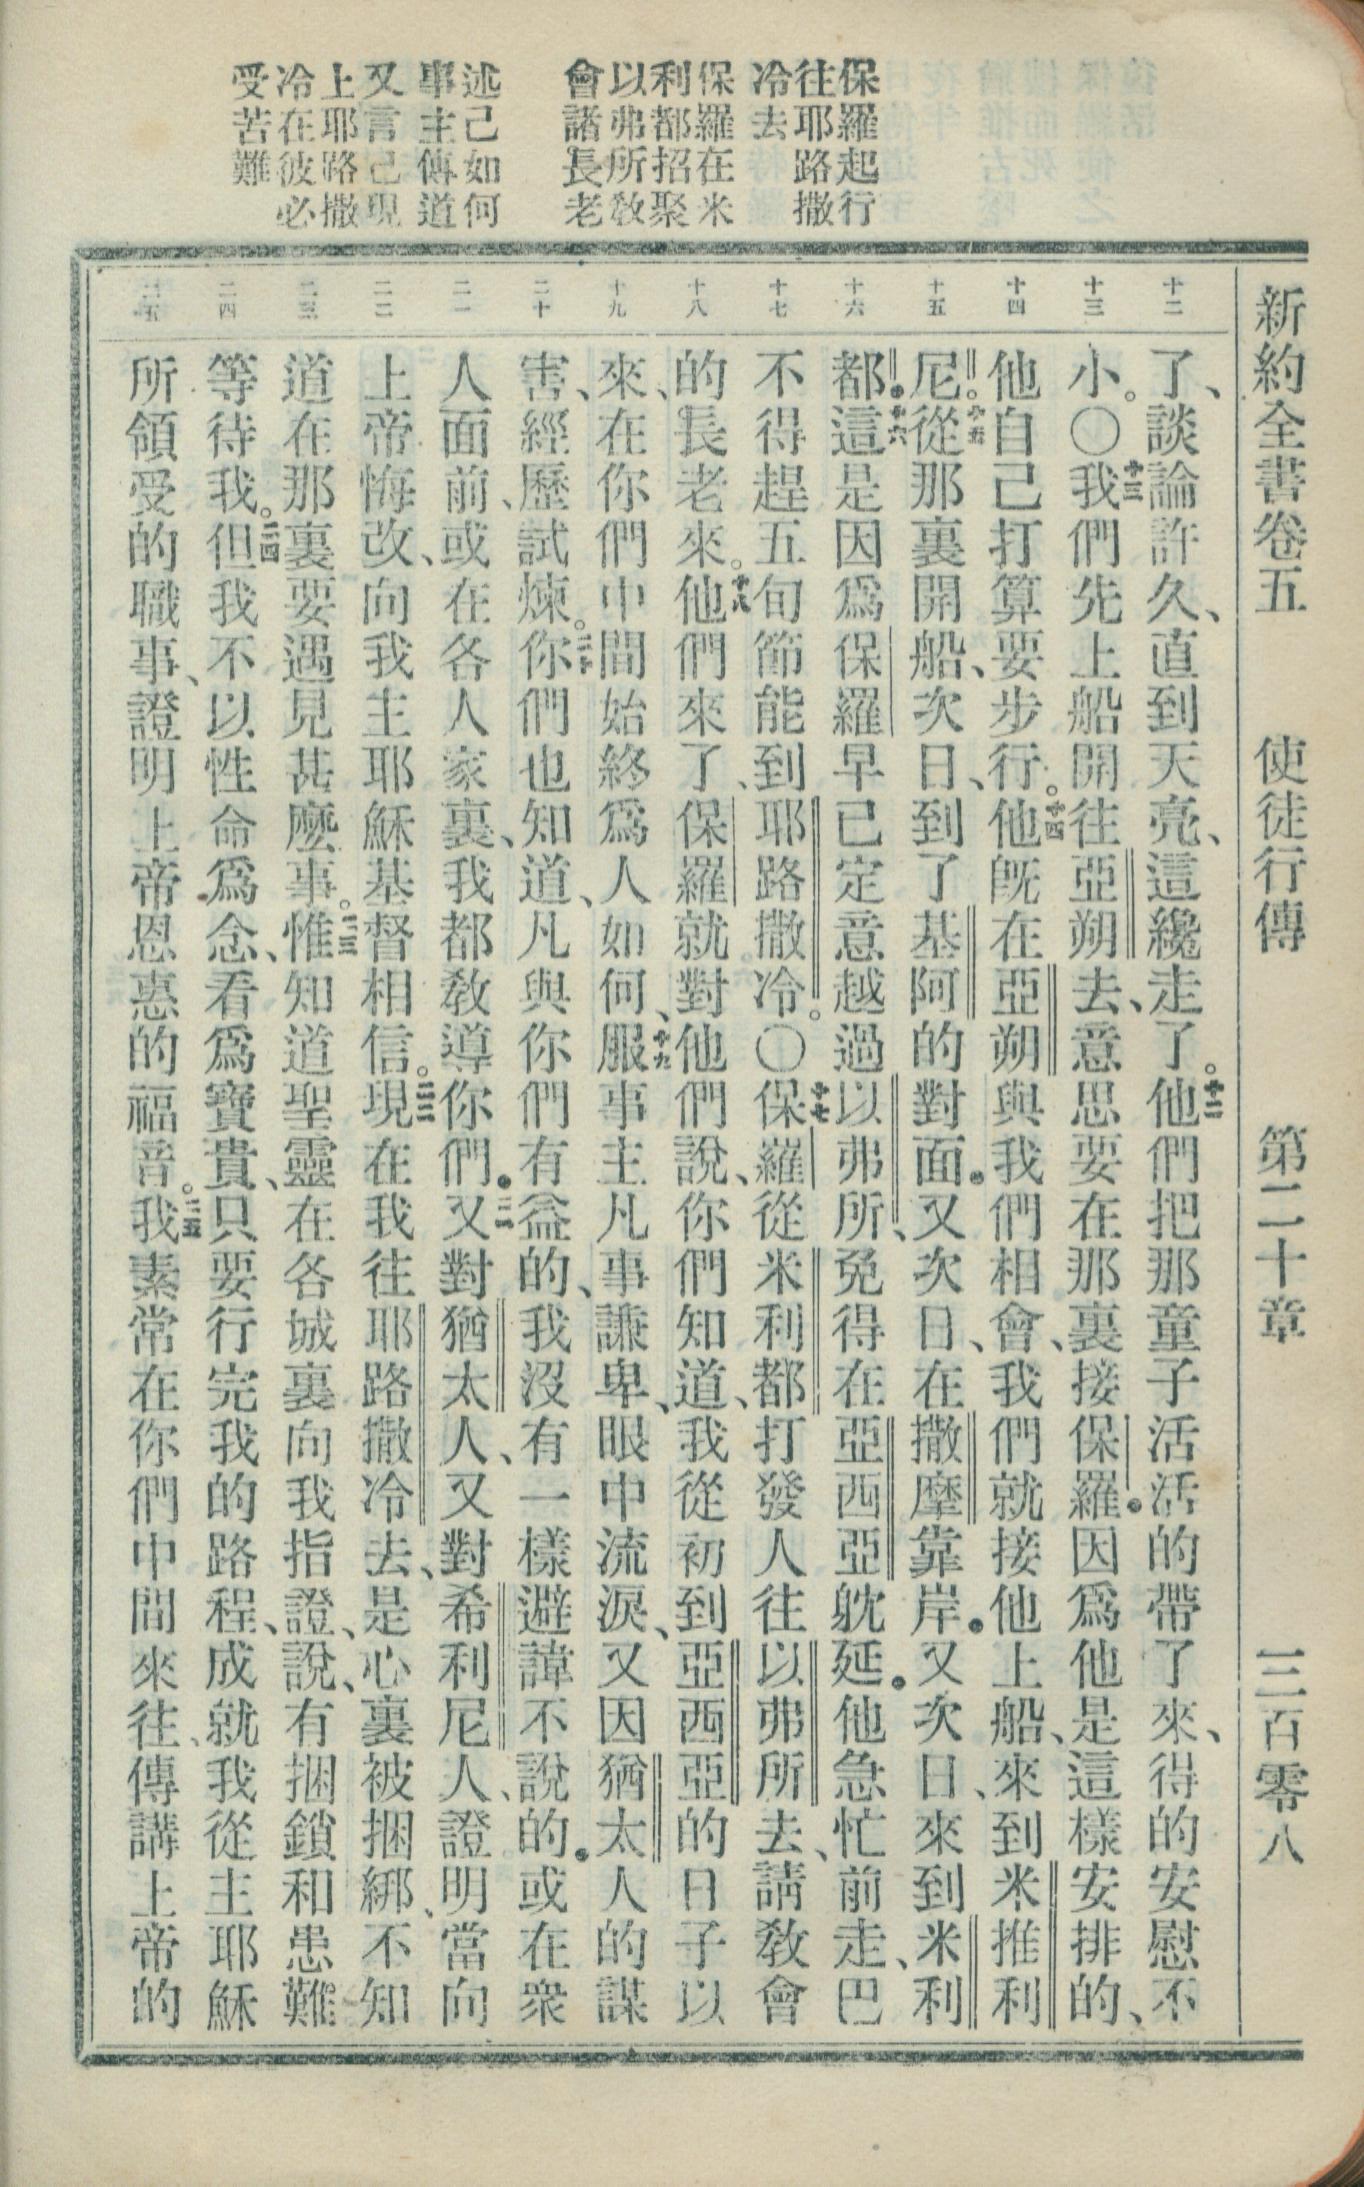 新約全書卷五 使徒行傳 第二十章 三百零八
保羅起行
往耶路撒
冷去
保羅在米
利都招聚
以弗所教
會諸長老
述己如何
事主傳道
又言己現
上耶路撒
冷在彼必
受苦難
十二 十三 十四 十五 十六 十七 十八 十九 二十 二一 二二 二三 二四 二五
了、談論許久、直到天亮、這纔走了。十二他們把那童子活活的帶了來、得的安慰不
小。〇十三我們先上船開往亞朔去、意思要在那裏接保羅.因爲他是這樣安排的、
他自己打算要步行。十四他既在亞朔與我們相會、我們就接他上船、來到米推利
尼。十五從那裏開船、次日、到了基阿的對面.又次日、在撒摩靠岸.又次日、來到米利
都.十六這是因爲保羅早已定意越過以弗所、免得在亞西亞躭延.他急忙前走、巴
不得趕五旬節能到耶路撒冷。〇十七保羅從米利都打發人往以弗所去、請教會
的長老來。十八他們來了、保羅就對他們說、你們知道、我從初到亞西亞的日子以
來、在你們中間始終爲人如何、十九服事主凡事謙卑、眼中流淚、又因猶太人的謀
害、經歷試煉。二十你們也知道、凡與你們有益的、我沒有一樣避諱不說的.或在衆
人面前、或在各人家裏、我都教導你們.二一又對猶太人、又對希利尼人、證明當向
上帝悔改、向我主耶穌基督相信。二二現在我往耶路撒冷去、是心裏被捆綁、不知
道在那裏要遇見甚麽事。二三惟知道聖靈在各城裏向我指證、說、有捆鎖和患難
等待我。二四但我不以性命爲念、看爲寶貴、只要行完我的路程、成就我從主耶穌
所領受的職事、證明上帝恩惠的福音。二五我素常在你們中間來往、傳講上帝的